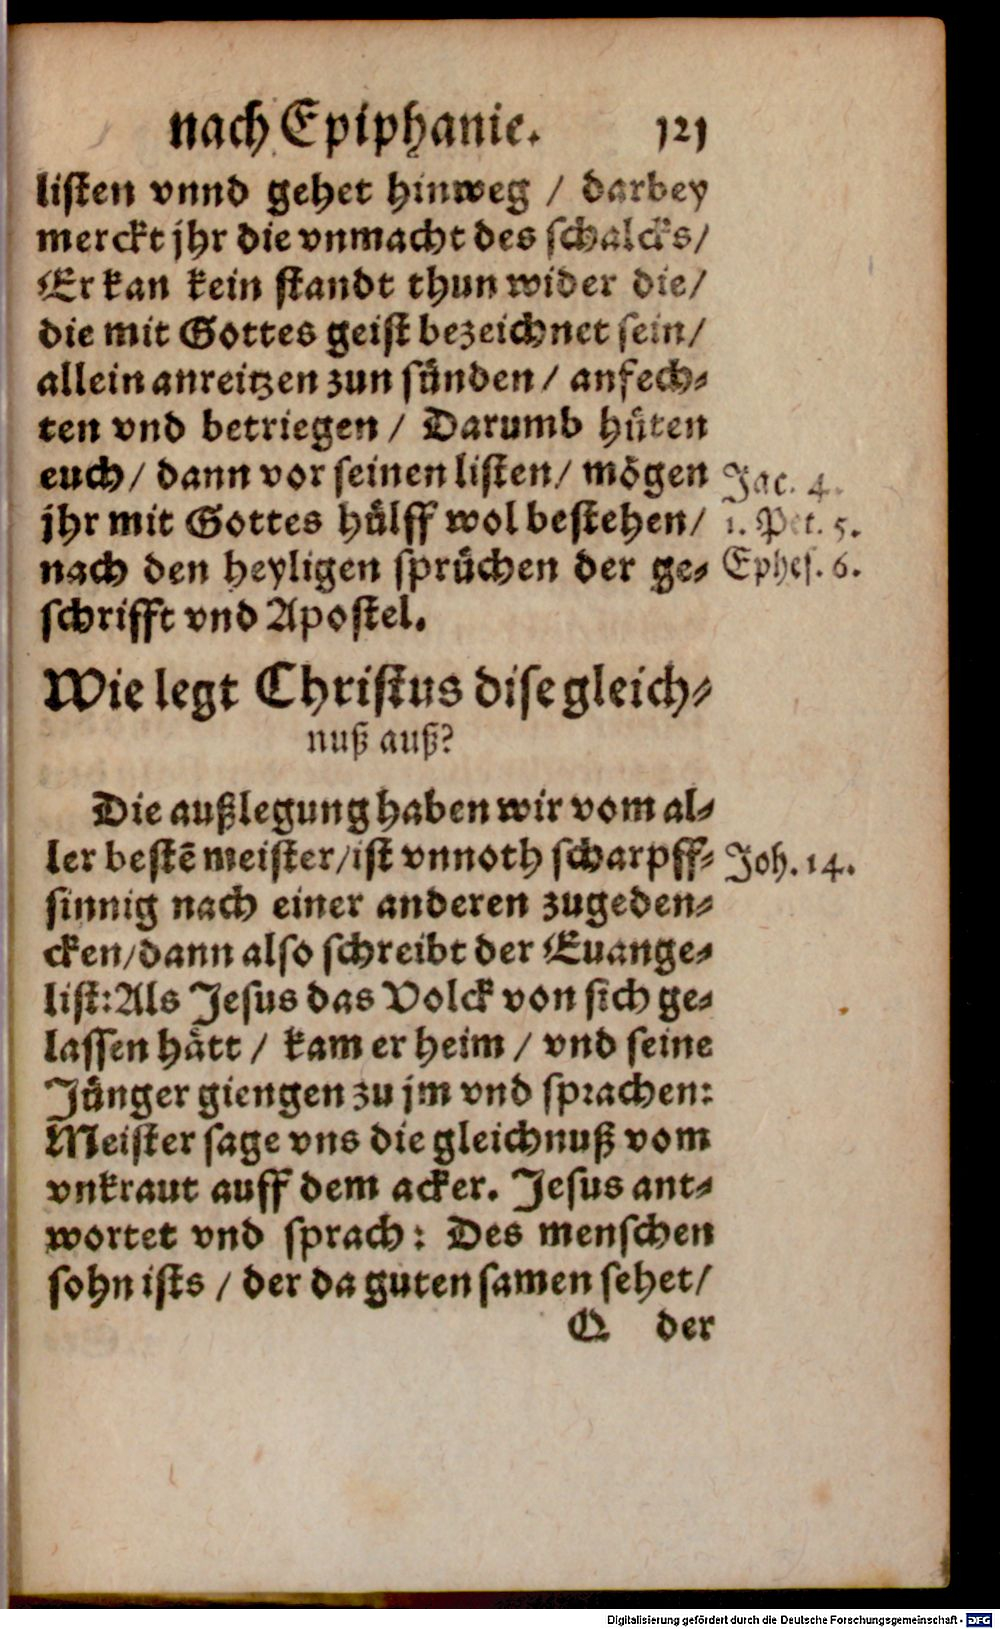 nach Epiphanie. 121
listen vnnd gehet hinweg / darbey
merckt jhr die vnmacht des schalcks/
Er kan kein standt thun wider die/
die mit Gottes geist bezeichnet sein/
allein anreitzen zun sünden / anfech-
ten vnd betriegen / Darumb hüten
euch / dann vor seinen listen / mögen Jac. 4.
jhr mit Gottes hülff wol bestehen/ 1. Pet. 5.
nach den heyligen sprüchen der ge- Ephes. 6.
schrifft vnd Apostel.
Wie legt Christus dise gleich-
nuß auß?
Die außlegung haben wir vom al-
ler bestē meister/ist vnnoth scharpff- Joh. 14.
sinnig nach einer anderen zugeden-
cken/dann also schreibt der Euange-
list:Als Jesus das Volck von sich ge-
lassen hätt / kam er heim / vnd seine
Jünger giengen zu jm vnd sprachen:
Meister sage vns die gleichnuß vom
vnkraut auff dem acker. Jesus ant-
wortet vnd sprach: Des menschen
sohn ists / der da guten samen sehet/
Q der
Digitalisierung gefördert durch die Deutsche Forschungsgemeinschaft - DFG